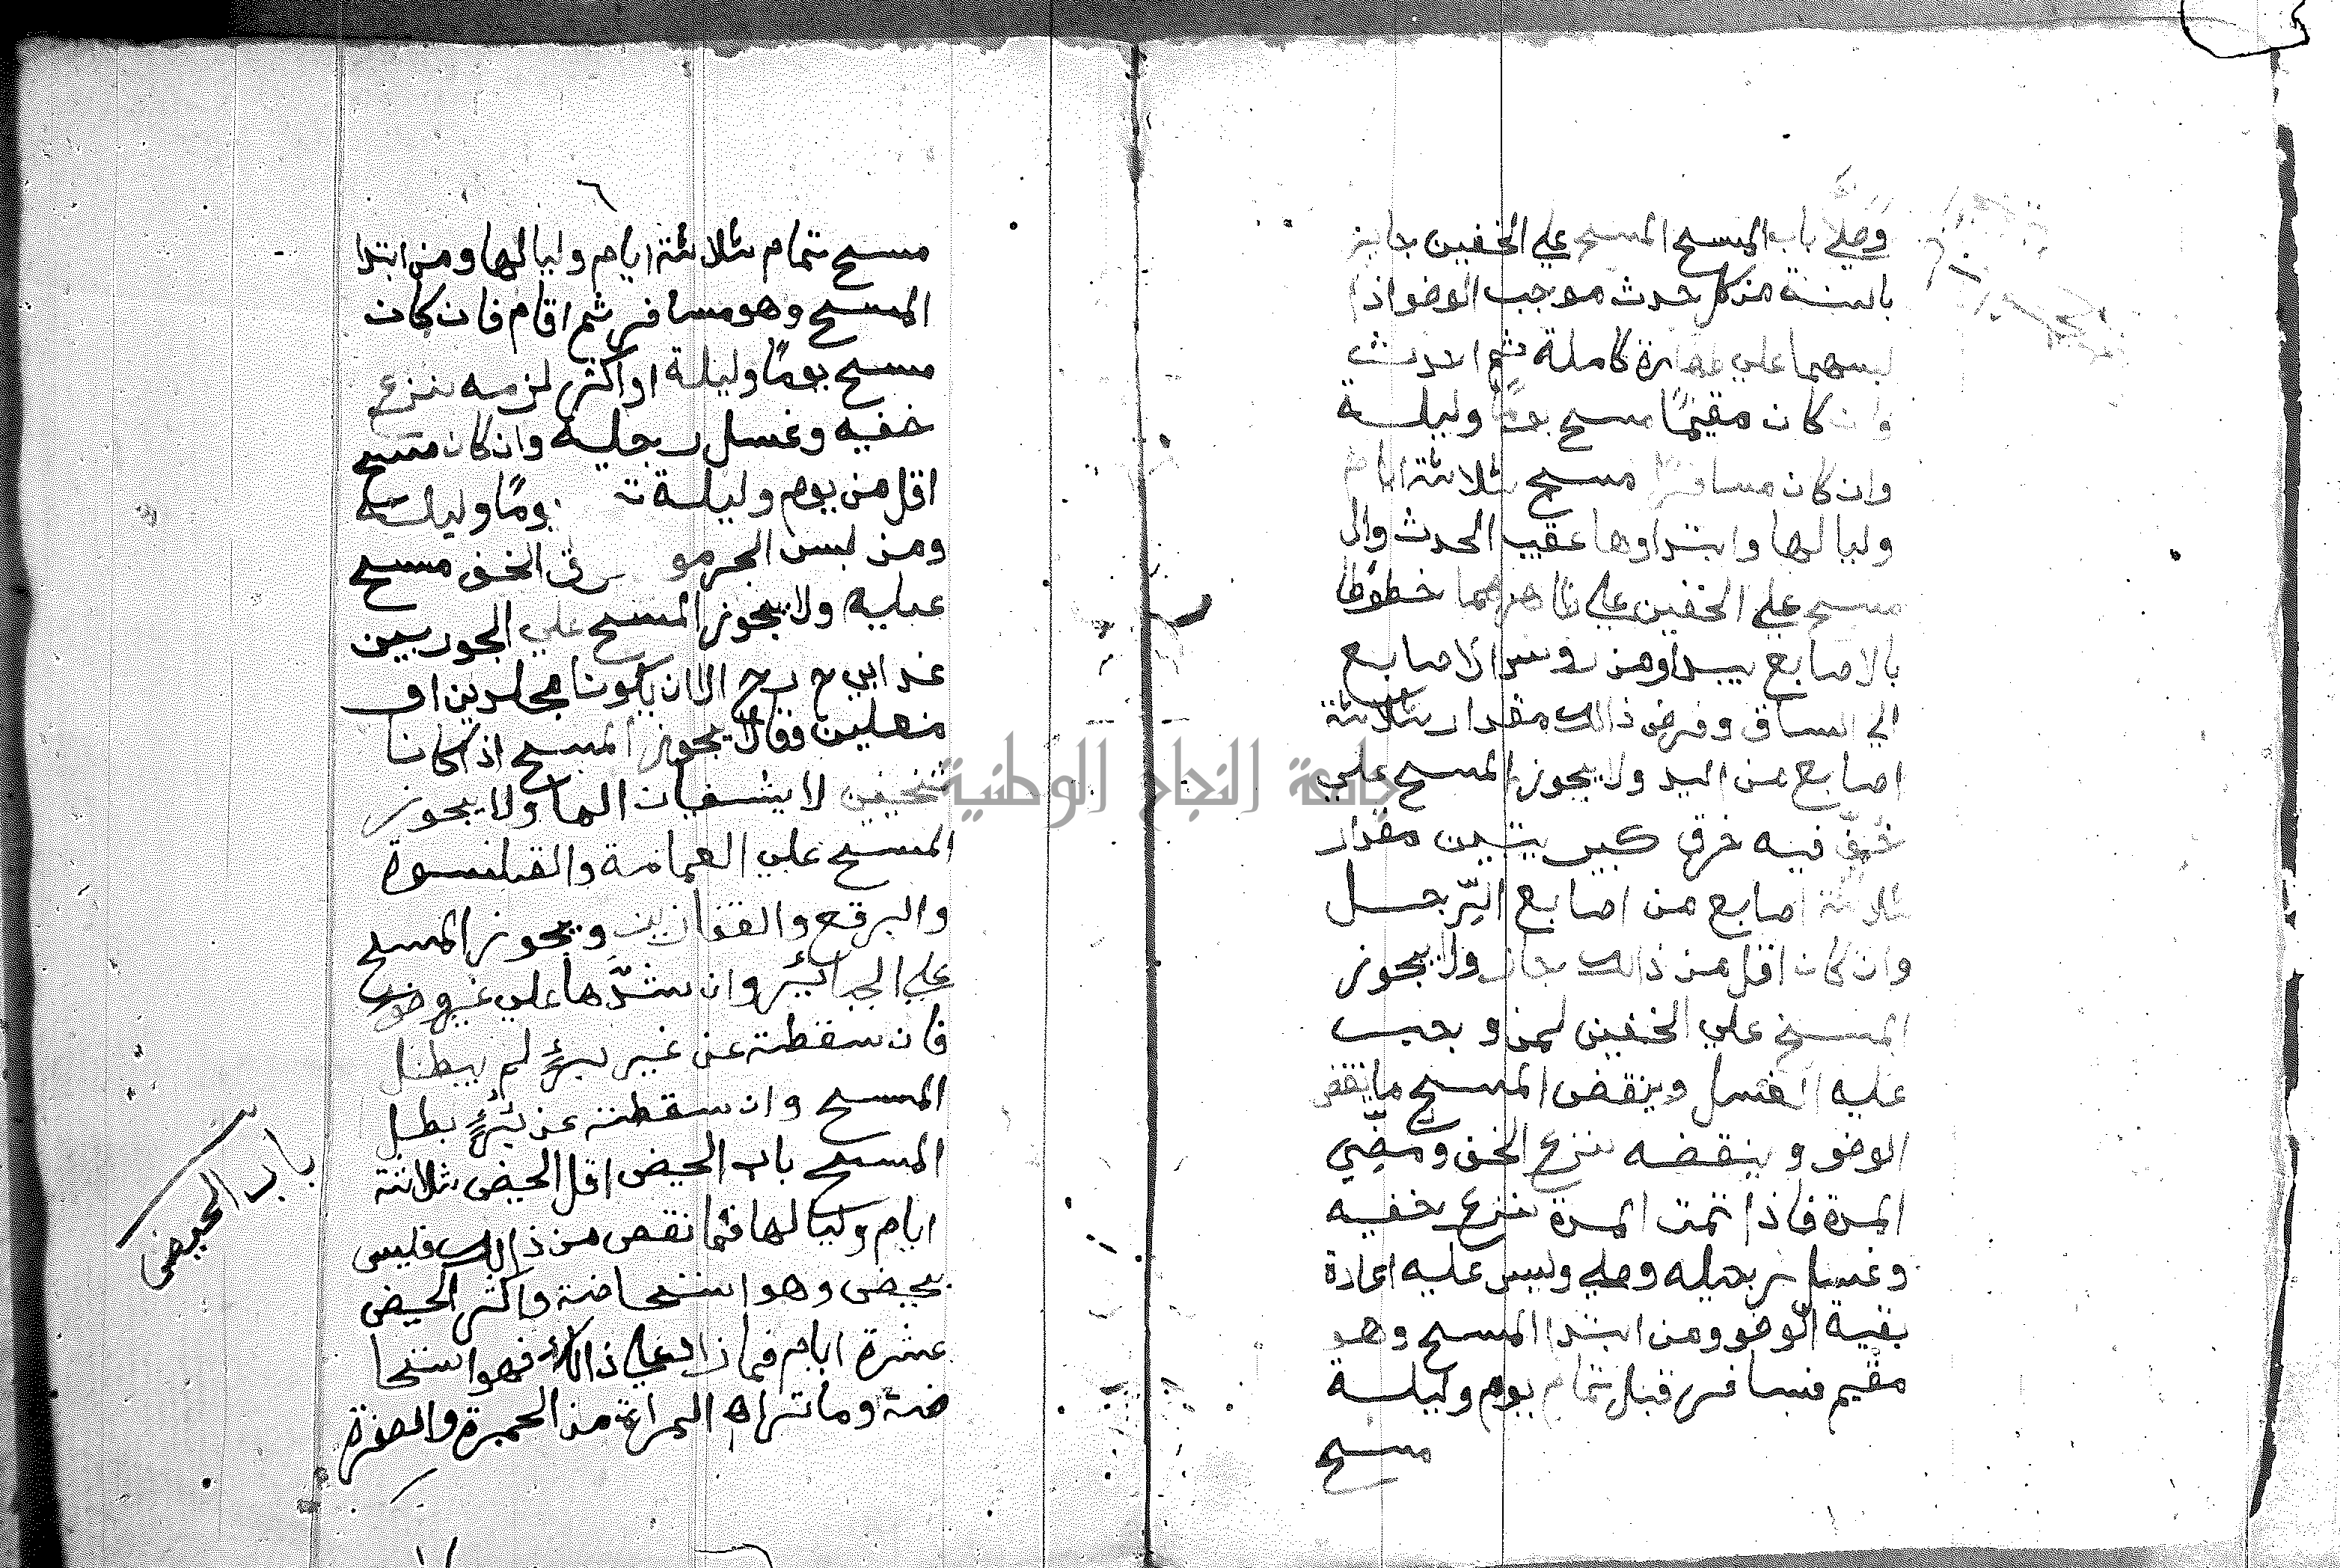 وصلي باب المسح المسح علي الخفين جايز
بالسنة من كل حدث موجب الوضو اذا
لبسهما علي طهارة كاملة ثم احدث
وان كان مقيمًا مسح يومًا وليلة
وان كان مسافرًا مسح ثلاثة ايام
وليالها وابتداوها عقيب الحدث وال
مسح علي الخفين علي ظاهرهما خطوطا
بالاصابع يبداو من روس الاصابع
الي الساق وفرض ذالك مقدار ثلاثة
اصابع من اليد ولا يجوز المسح علي
خفّ فيه خرق كبير يتبين مقدار
ثلاثة اصابع من اصابع الرّجل
وان كان اقل من ذالك جاز ولا يجوز
المسح علي الخفين لمن وجب
عليه الغسل وينقض المسح ما ينقض
الوضو وينقضه نزع الخف ومضّي
المدة فاذا تمت المدة نزع خفيه
وغسل رجليه وصلي وليس عليه اعادة
بقية الوضو ومن ابتدا المسح وهو
مقيم فسافر قبل تمام يوم وليلة
مسح
٦
مسح تمام ثلاثة ايام وليالها ومن ابتدا
المسح وهو مسافر ثم اقام فان كان
مسح يومًا وليلة او اكثر لزمه نزع
خفيه وغسل رجليه وان كان مسح
اقل من يوم وليلة يومًا وليلة
ومن لبس الجرموق الخف مسح
عليه ولا يجوز المسح علي الجوربين
عند ابي ح رح الا ان يكونا مجلدين او
منعلين وقالا يجوز المسح اذ كانا
ثخينين لا يشفان الما ولا يجوز
المسح علي العمامة والقلنسوة
والبرقع والقفازين ويجوز المسح
علي الجبائر وان شدّها علي غير وضو
فان سقطة عن غير برءٍ لم يبطل
المسح وان سقطة عن بُرءٍ بطل
المسح باب الحيض اقل الحيض ثلاثة
ايام وليالها فما نقص من ذالك فليس
بحيض وهو استحاضة واكثر الحيض
عشرة ايام فما زاد علي ذالك فهو استحا
ضة وما تراه المراة من الحمرة والصفرة
باب الحيض
جامعة النجاح الوطنية